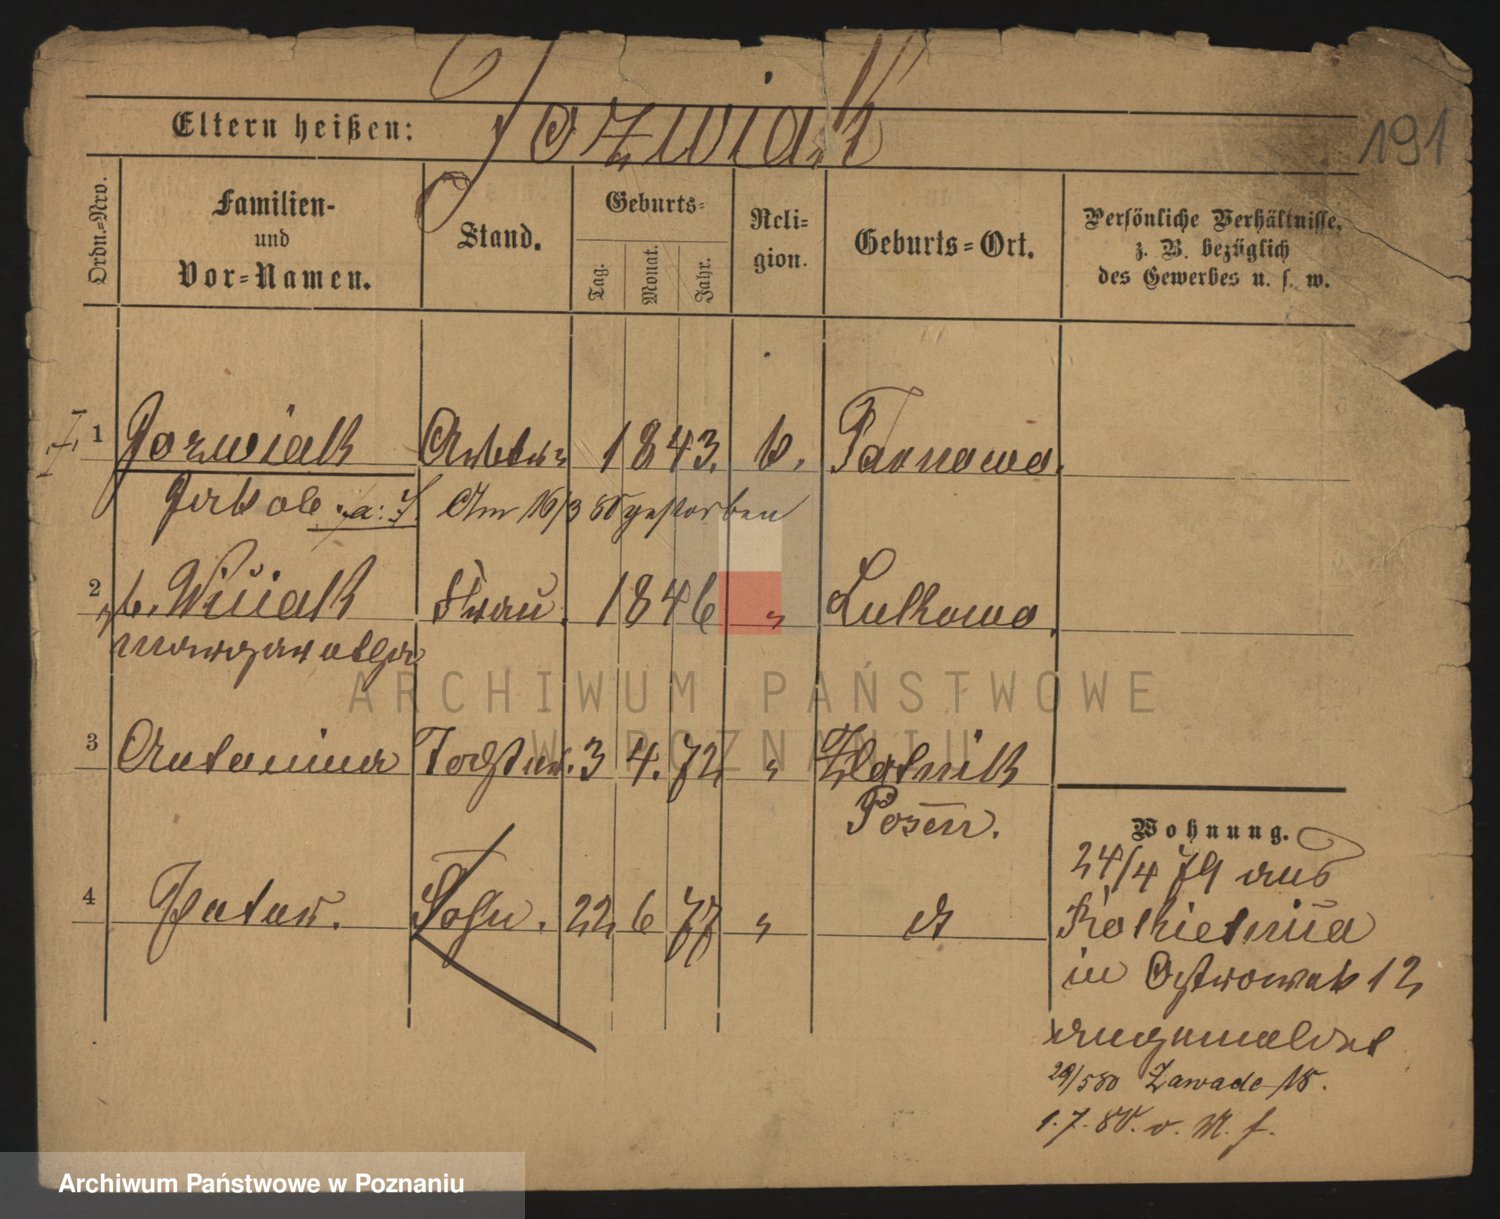 Jozwiak
191
Eltern heißen:
Ordn.-Nro.
Familien-
und
Vor-Namen.
Stand.
Geburts-
Tag. Monat. Jahr.
Reli-
gion.
Geburts-Ort.
Persönliche Verhältnisse,
z. B. bezüglich
des Gewerbes u. s. w.
1 Jozwiak 1843. k. Tarnowo.
Jakob Am 16/3 80 gestorben
2 Frau. 1846 " Lulkowo.
Margaretha
3 Antonina Tochter. 3 4. 72 " Zlotnik
Posen.
4 Peter. Sohn. 22 6 77 "
Wohnung.
24/4 79 aus
Rokietnica
in Ostrowek 12
angemeldet
29/5 80 Zawade 18.
1.7.80. v. M. f.
ARCHIWUM PAŃSTWOWE
W POZNANIU
Archiwum Państwowe w Poznaniu